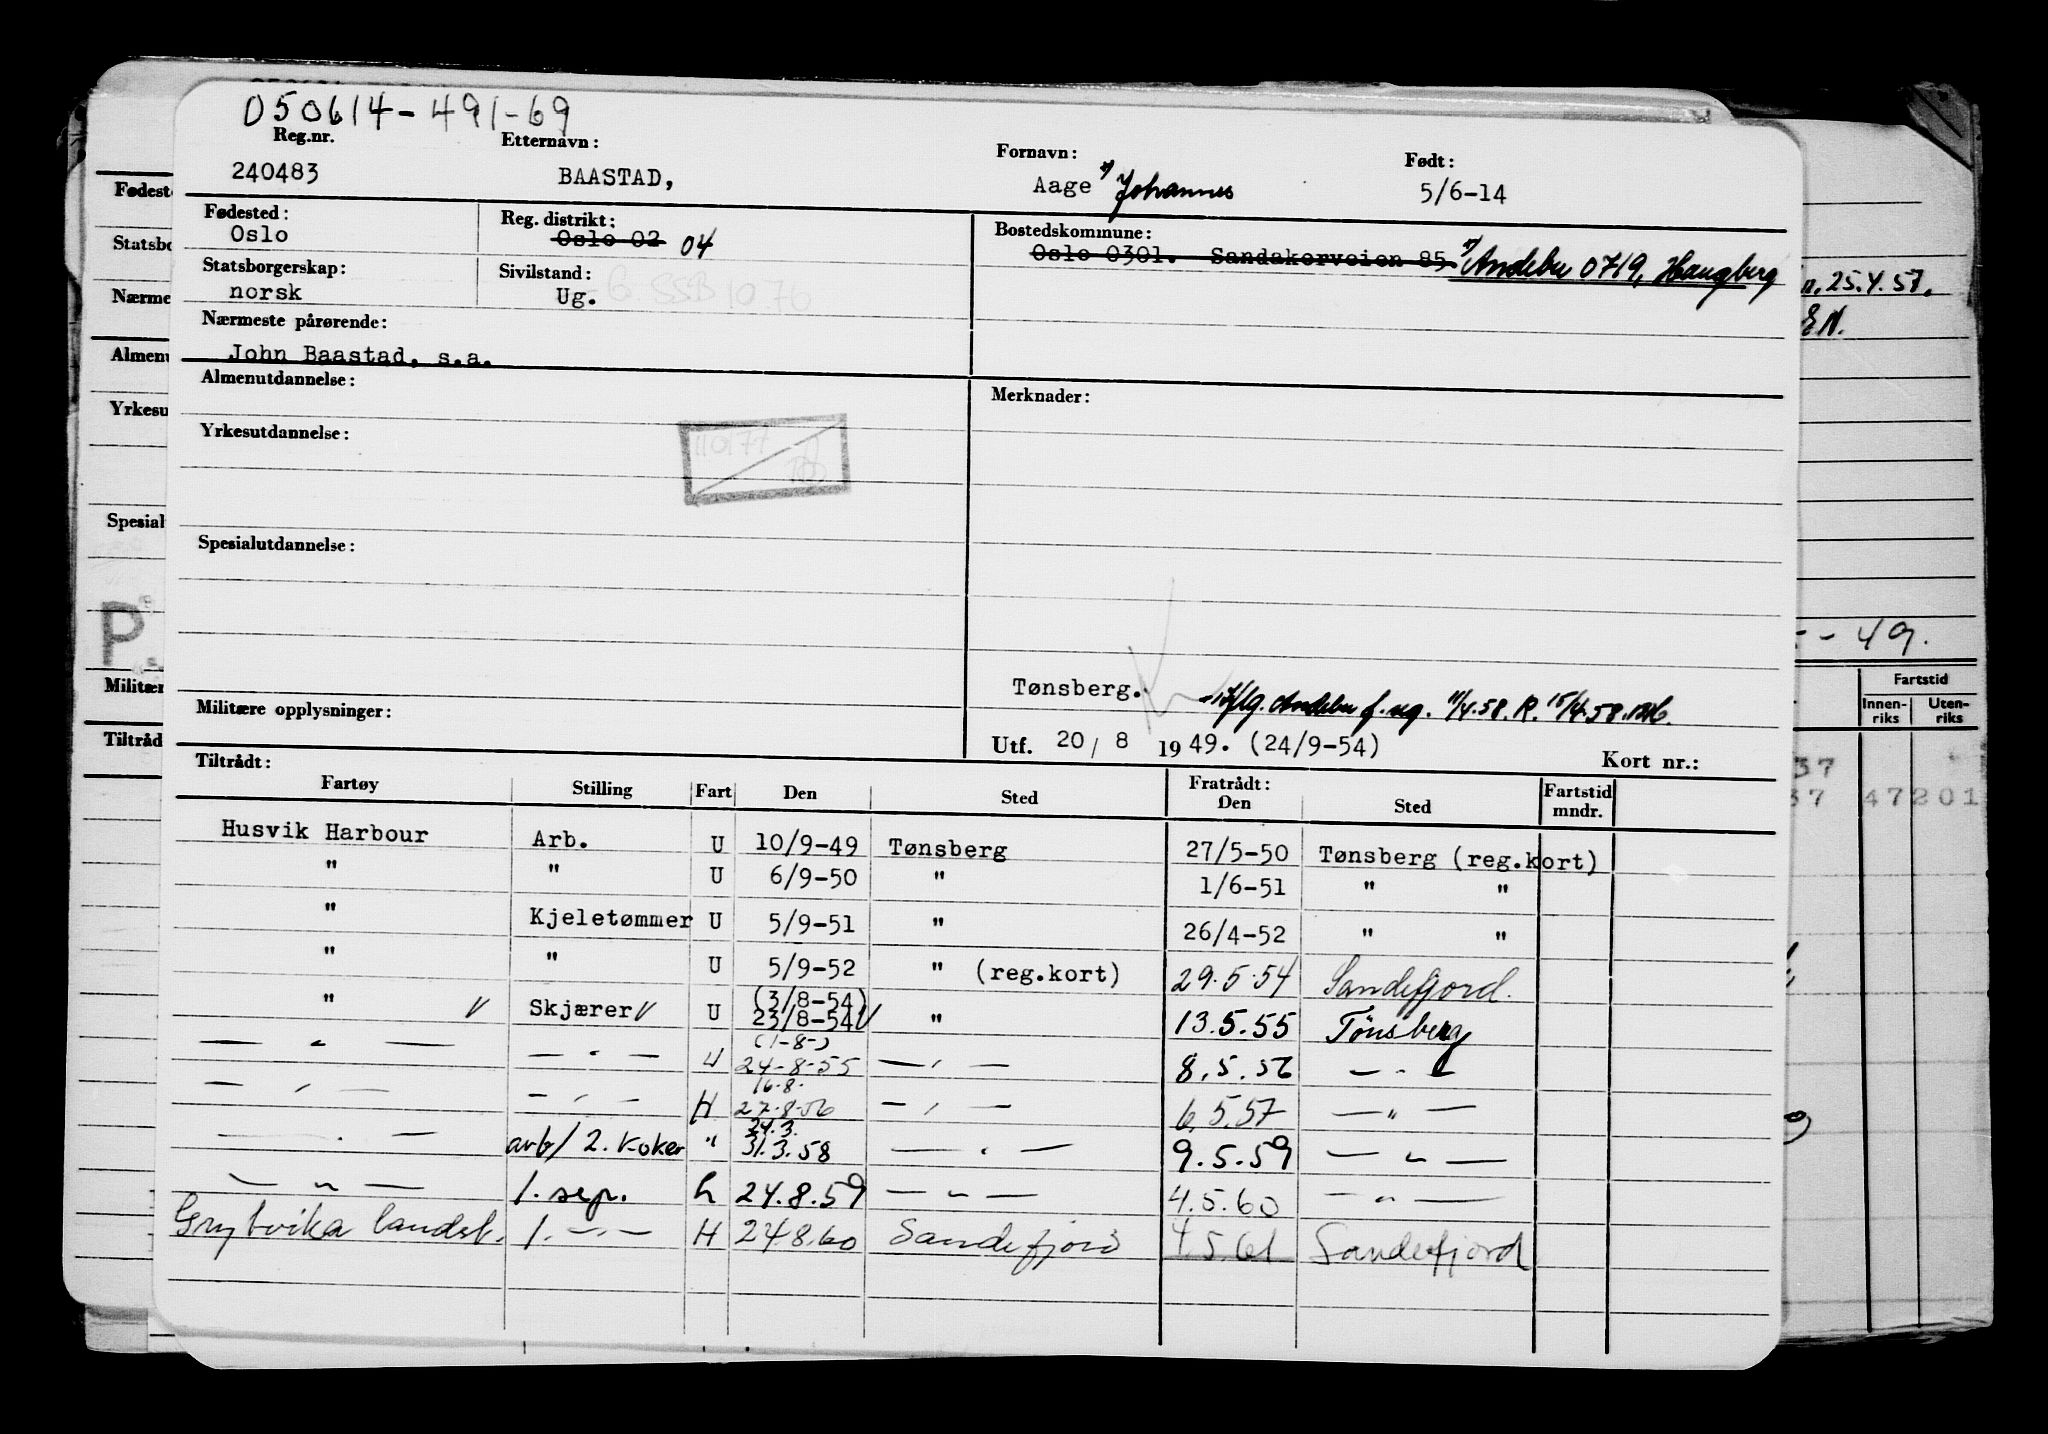 050614-491-69
Reg.nr. Etternavn: Fornavn: Født:
240483 BAASTAD, Aage Johannes 5/6-14
Fødested: Reg. distrikt: Bostedskommune:
Oslo Oslo 02 04 Oslo 0301. Sandakerveien 85 Andebu 0719, Haugberg
Statsborgerskap: Sivilstand:
norsk Ug.
Nærmeste pårørende:
John Baastad, s.a.
Almenutdannelse: Merknader:
Yrkesutdannelse:
Spesialutdannelse:
Tønsberg. Andebu f. reg. 11/4.58. R. 15/4.58.
Militære opplysninger:
Utf. 20/ 8 1949. (24/9-54) Kort nr.:
Tiltrådt: Fratrådt:
Fartøy Stilling Fart Den Sted Den Sted Fartstid mndr.
Husvik Harbour Arb. U 10/9-49 Tønsberg 27/5-50 Tønsberg (reg.kort)
" " U 6/9-50 " 1/6-51 " "
" Kjeletømmer U 5/9-51 " 26/4-52 " "
" " U 5/9-52 " (reg.kort) 29.5.54 Sandefjord.
" Skjærer U (3/8-54) 23/8-54 " 13.5.55 Tønsberg
— " — — " — U (1-8-) 24-8-55 — " — 8.5.56 — " —
— " — — " — H 16.8. 27.8.56 — " — 6.5.57 — " —
— " — arb/ 2. koker " 24.3. 31.3.58 — " — 9.5.59 — " —
— " — 1. sep. h 24.8.59 — " — 4.5.60 — " —
Grytvika landst. 1. — " — H 24.8.60 Sandefjord 4.5.61 Sandefjord
Fødeste
Statsbo
Nærme
Almenu
Yrkesu
Spesial
P
Militær
Tiltråd
25.4.57.
EN.
- 49.
Fartstid
Innen-riks Uten-riks
37
37 47201